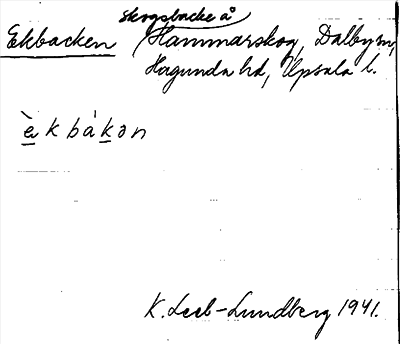 skogsbacke å
Ekbacken Hammarskog, Dalby sn,
Hagunda hd, Upsala l.
è̲kbák̲ən
K. Leeb-Lundberg 1941.